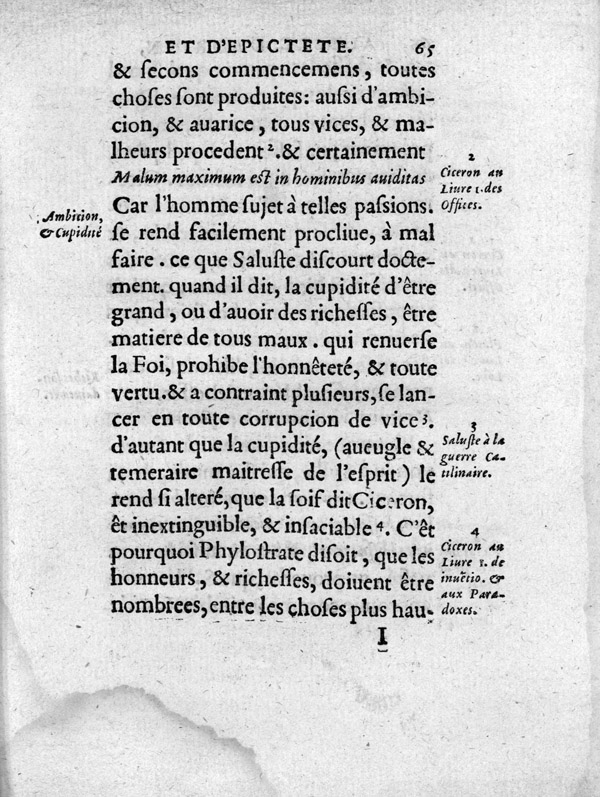 ET D'EPICTETE. 65
& ſecons commencemens, toutes
choſes ſont produites: auſsi d'ambi-
cion, & auarice, tous vices, & ma-
lheurs procedent ². & certainement
Malum maximum eſt in hominibus auiditas
Car l'homme ſujet à telles paſsions.
ſe rend facilement procliue, à mal
faire. ce que Saluſte diſcourt docte-
ment. quand il dit, la cupidité d'être
grand, ou d'auoir des richeſſes, être
matiere de tous maux. qui renuerſe
la Foi, prohibe l'honnêteté, & toute
vertu. & a contraint pluſieurs, ſe lan-
cer en toute corrupcion de vice ³.
d'autant que la cupidité, (aueugle &
temeraire maitreſſe de l'eſprit) le
rend ſi alteré, que la ſoif dit Ciceron,
êt inextinguible, & inſaciable ⁴. C'êt
pourquoi Phyloſtrate diſoit, que les
honneurs, & richeſſes, doiuent être
nombrees, entre les choſes plus hau-
I
Ambition,
& Cupidité
2
Ciceron au
Liure 1. des
Offices.
3
Saluſte à la
guerre Ca-
tilinaire.
4
Ciceron au
Liure 1. de
inuẽtio. &
aux Para-
doxes.